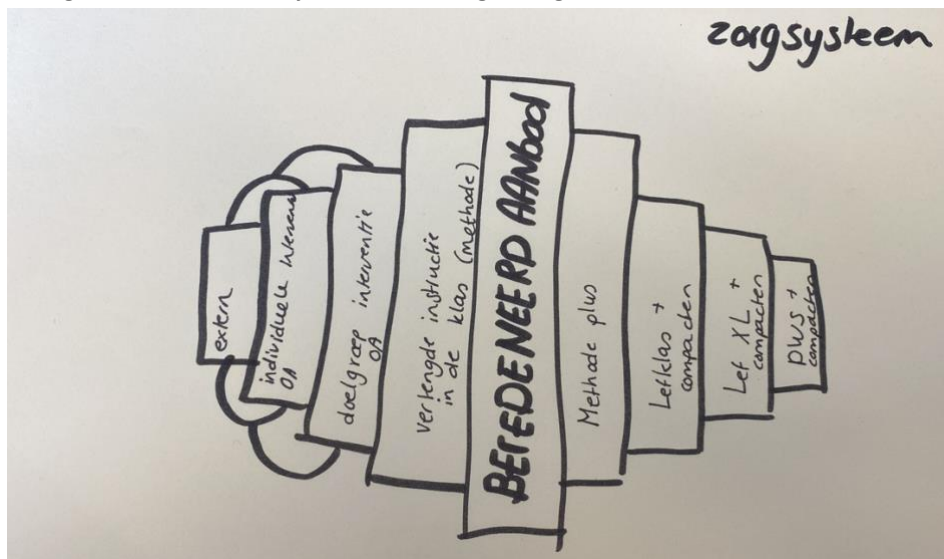 zorgsysteem
extern
individuele
OA
doelgroep interventie
OA
verlengde instructie
in de klas (methode)
BEREDENEERD AANBOD
Methode plus
Lefklas +
compacten
Lef XL +
compacten
DWS +
compacten